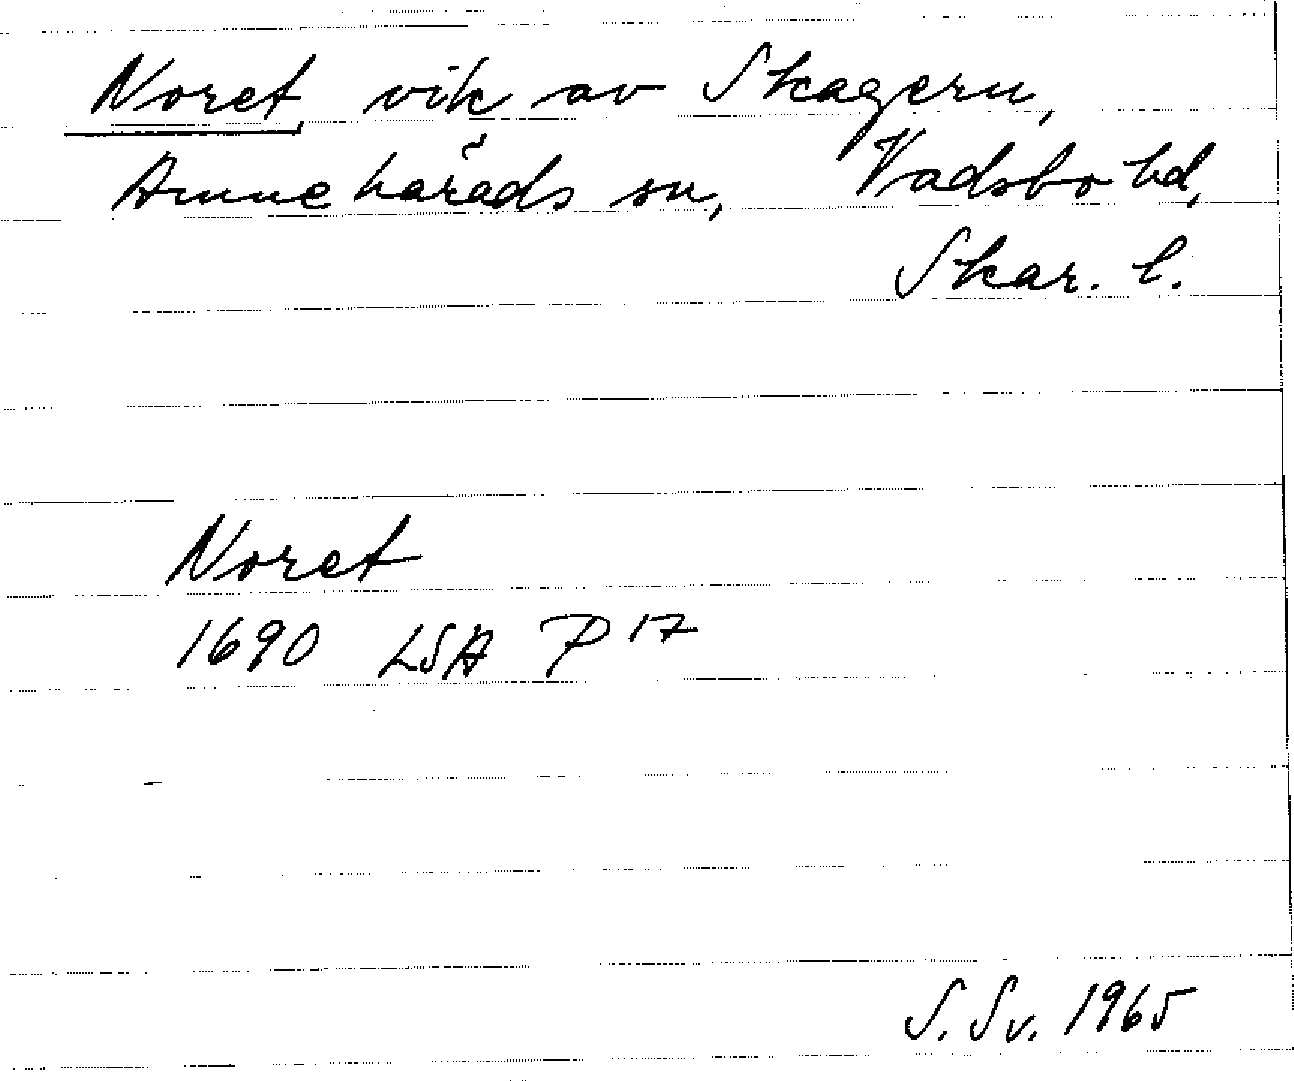 Noret, vik av Skagern,
Amnehärads sn, Vadsbo hd,
Skar. l.
Noret
1690 LSA P 17
S. Sv. 1965